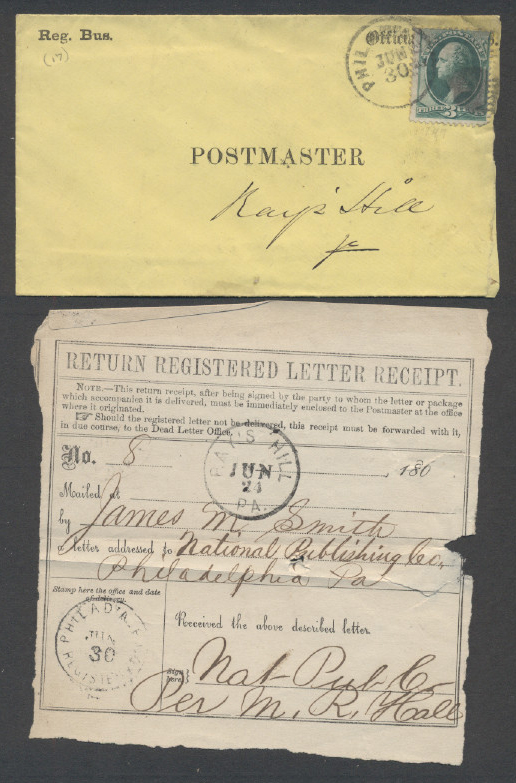 Reg. Bus.
(17)
Official
PHIL
JUN
30
3
POSTMASTER
Ray's Hill
RETURN REGISTERED LETTER RECEIPT.
NOTE.—This return receipt, after being signed by the party to whom the letter or package
which accompanies it is delivered, must be immediately enclosed to the Postmaster at the office
where it originated.
☞ Should the registered letter not be delivered, this receipt must be forwarded with it,
in due course, to the Dead Letter Office.
No. 8
, 180
RAYS HILL
JUN
24
PA.
Mailed at
by James M. Smith
letter addressed to National Publishing Co,
Philadelphia Pa
Stamp here the office and date
of delivery.
PHILADA
JUN
30
REGISTE
Received the above described letter.
Sign here}
Nat Pub Co
Per M. R. Hall